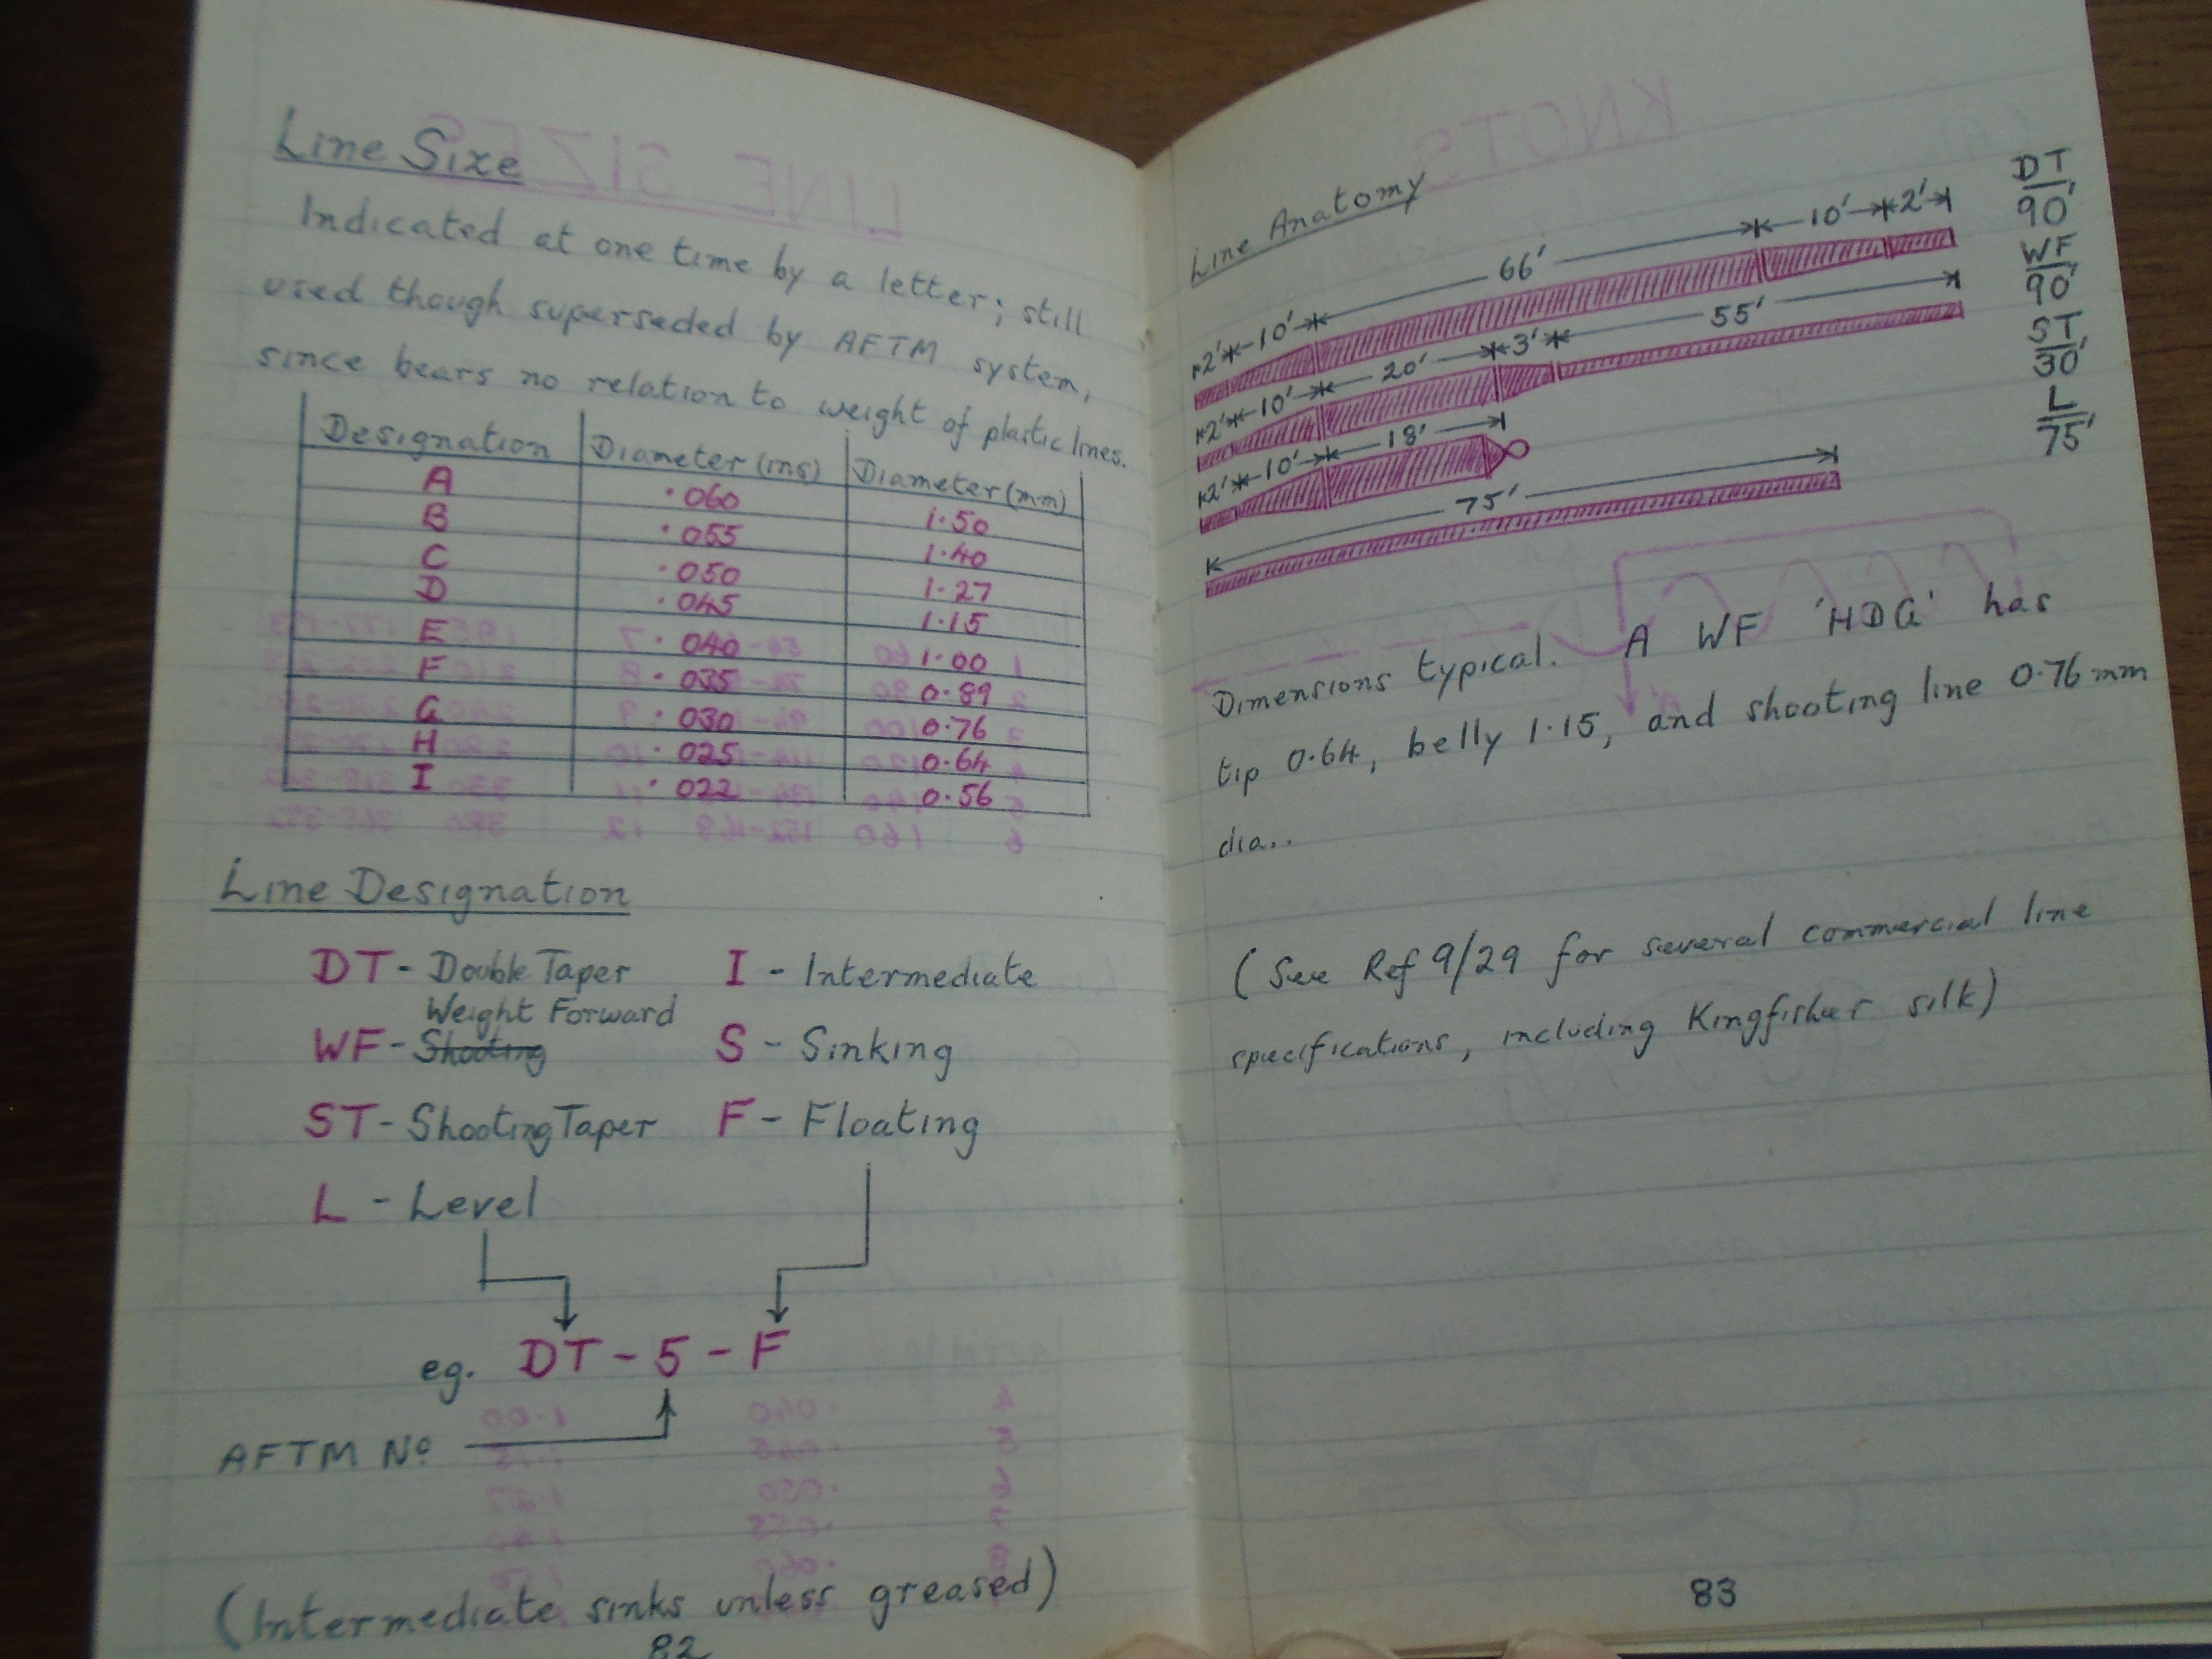 Line Size
Indicated at one time by a letter; still
used though superseded by AFTM system,
since bears no relation to weight of plastic lines.
Designation Diameter (ins) Diameter (mm)
A .060 1.50
B .055 1.40
C .050 1.27
D .045 1.15
E .040 1.00
F .035 0.89
G .030 0.76
H .025 0.64
I .022 0.56
Line Designation
DT - Double Taper I - Intermediate
Weight Forward
WF - Shooting S - Sinking
ST - Shooting Taper F - Floating
L - Level
eg. DT - 5 - F
AFTM No
(Intermediate sinks unless greased)
82
KNOTS
LINE SIZES
Line Anatomy
2' 10' 66' 10' 2' DT 90'
2' 10' 20' 3' 55' WF 90'
2' 10' 18' ST 30'
75' L 75'
Dimensions typical. A WF 'HDG' has
tip 0.64, belly 1.15, and shooting line 0.76 mm
dia..
(See Ref 9/29 for several commercial line
specifications, including Kingfisher silk)
83